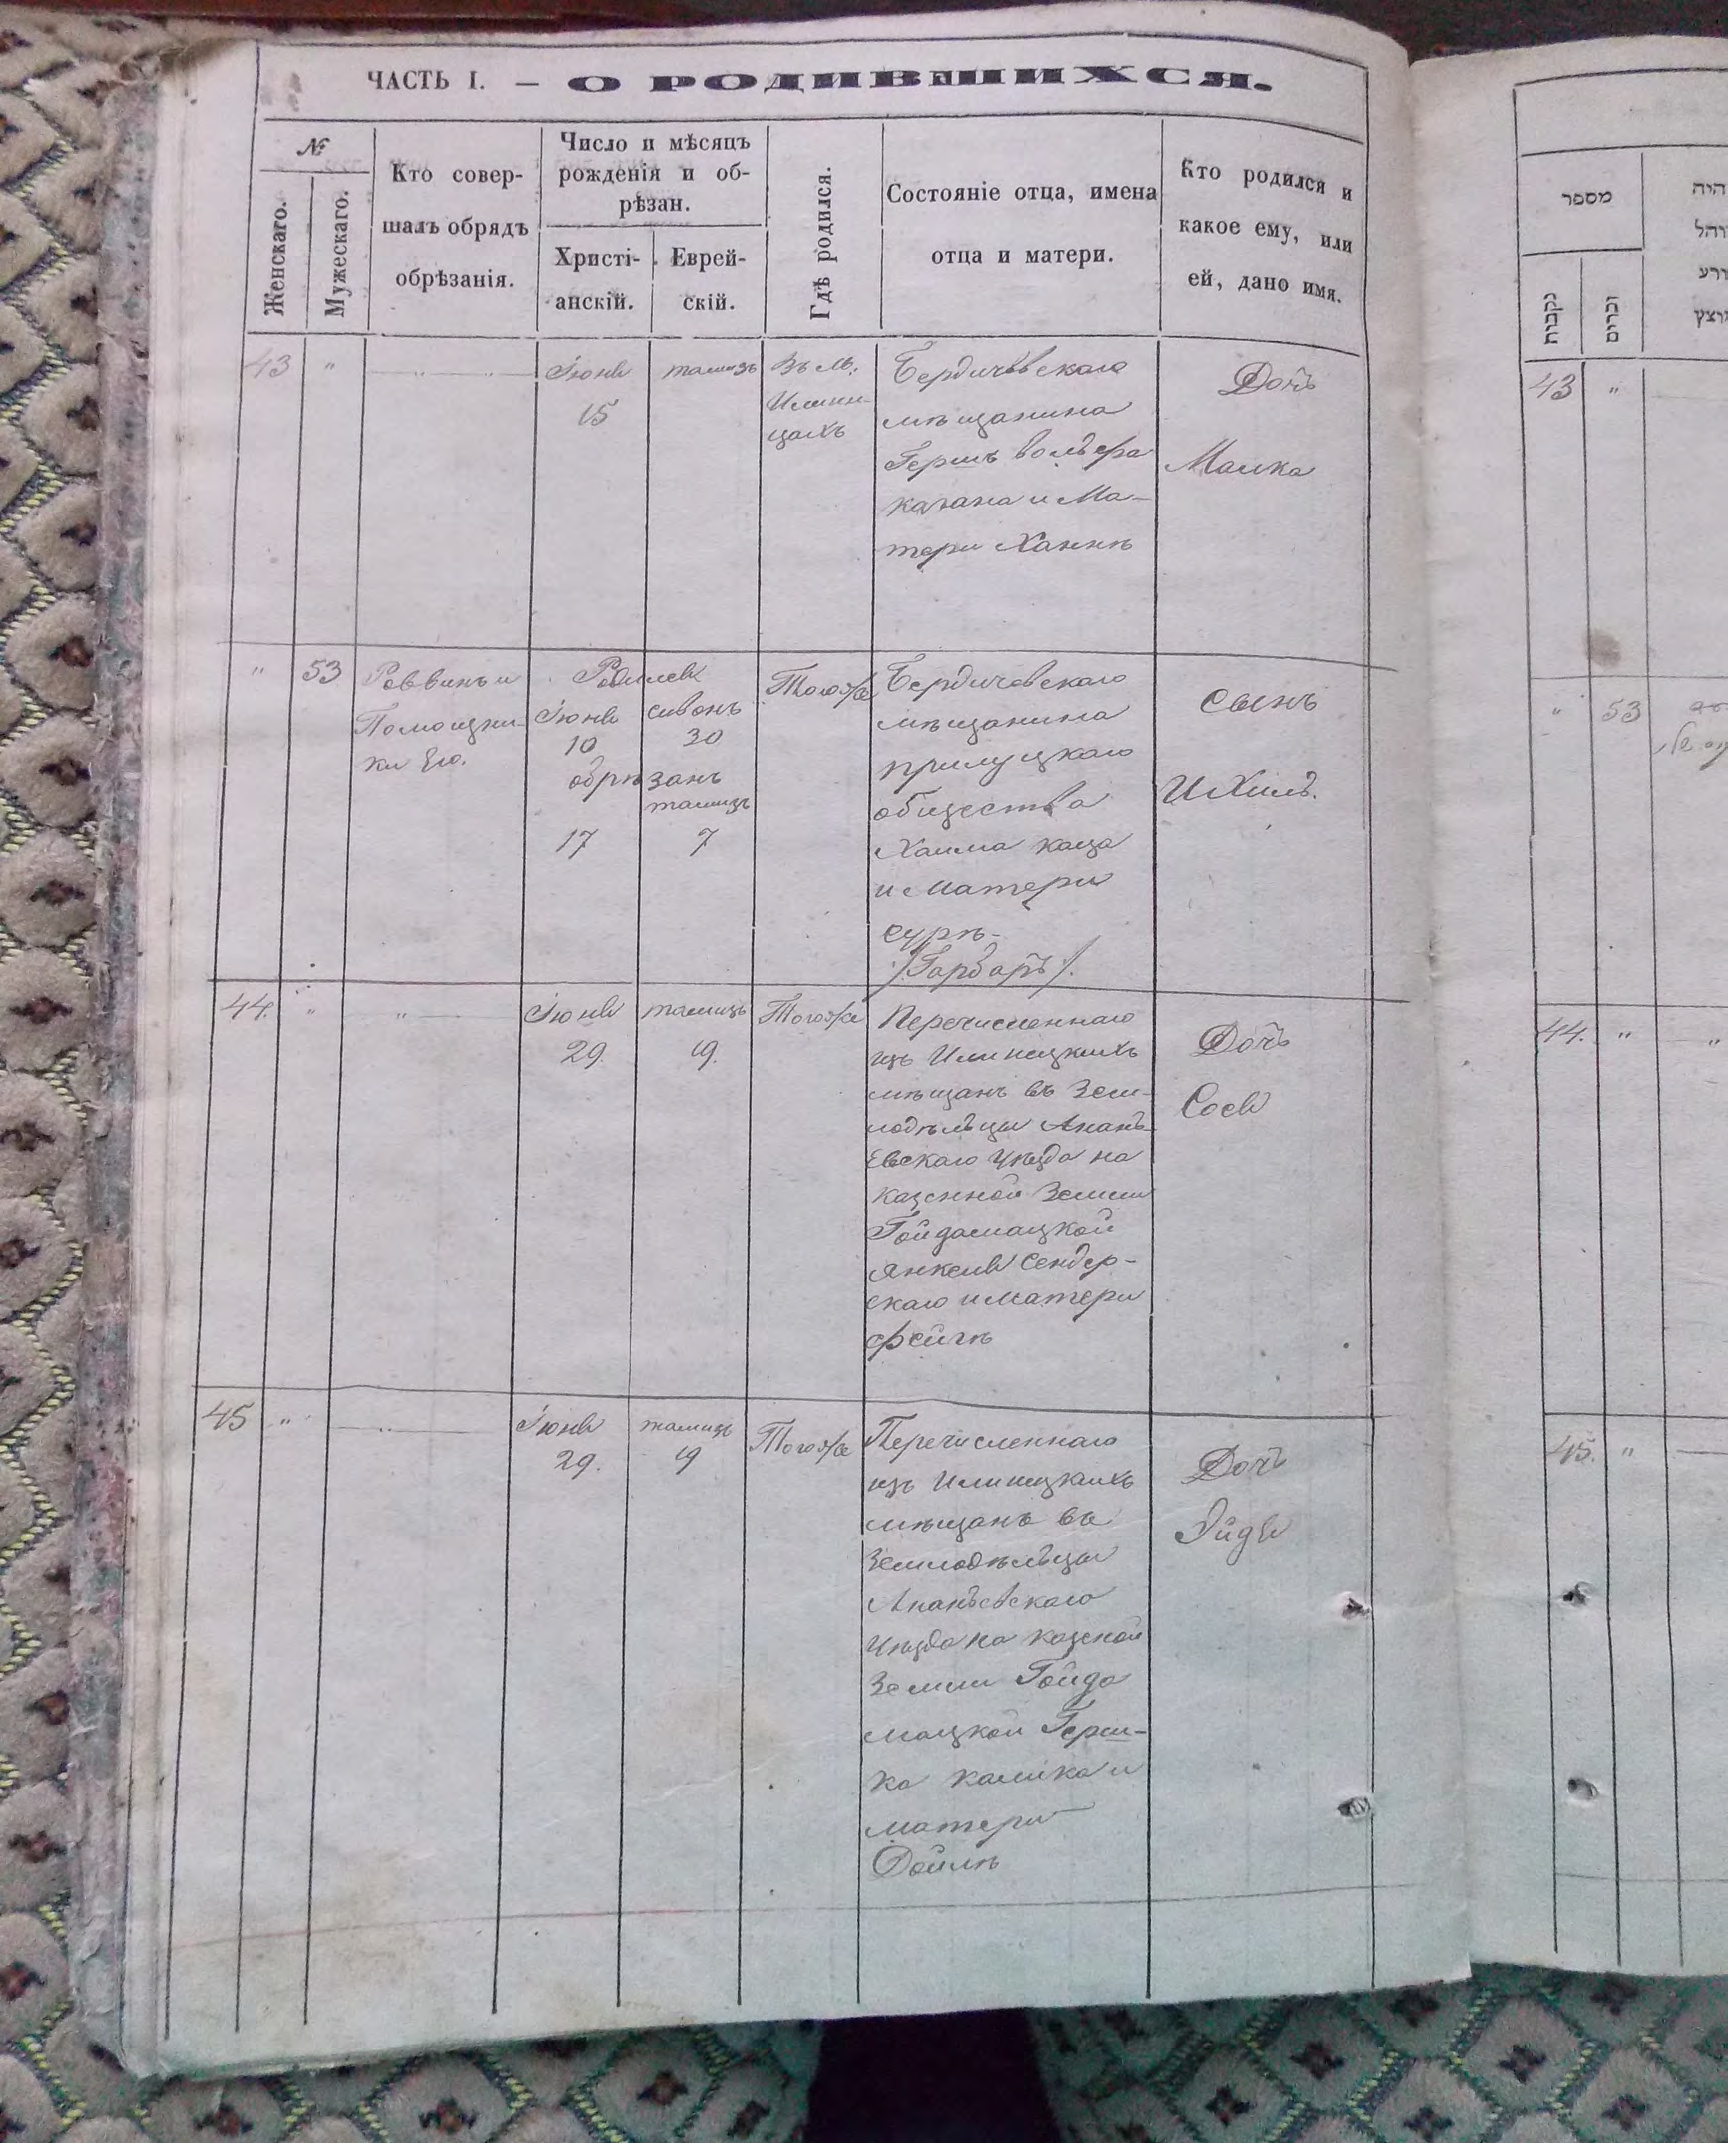 ЧАСТЬ I. — О РОДИВШИХСЯ.
№
Женскаго.
Мужескаго.
Кто совер-
шалъ обрядъ
обрѣзанія.
Число и мѣсяцъ
рожденія и об-
рѣзан.
Христі-
анскій.
Еврей-
скій.
Гдѣ родился.
Состояніе отца, имена
отца и матери.
Кто родился и
какое ему, или
ей, дано имя.
43 " " "
Іюня
15
тамизъ
Въ м.
Илин-
цахъ
Бердичевскаго
мѣщанина
Гершъ Вольфа
кагана и Ма-
тери Ханнѣ
Дочь
Малка
" 53
Раввинъ и
Помощни-
ки Его.
Родился
Іюня сивонъ
10 30
обрѣзанъ
тамизъ
17 7
Тогоже
Бердичевскаго
мѣщанина
прилуцкаго
общества
Хаима каца
и Матери
сурѣ-
/Гарбаръ/.
сынъ
Ихилъ.
44. " "
Іюня
29.
тамизъ
19.
Тогоже
Перечисленнаго
изъ Илинецкихъ
мѣщанъ въ Зем-
лодѣльцы Анань-
Евскаго уѣзда на
казенной Земли
Гойдамацкой
Янкеля Сендер-
скаго и матери
фейгѣ
Дочь
Сося
45 " "
Іюня
29.
тамизъ
19
Тогоже
Перечисленнаго
изъ Илинецкихъ
мѣщанъ въ
Землодѣльцы
Ананьевскаго
уѣзда на казеной
Земли Гойда
мацкой Герш-
ка калика и
матери
Фойлѣ
Дочь
Эйдя
מספר
נקבות
זכרים
43 "
" 53
44. " "
45. "